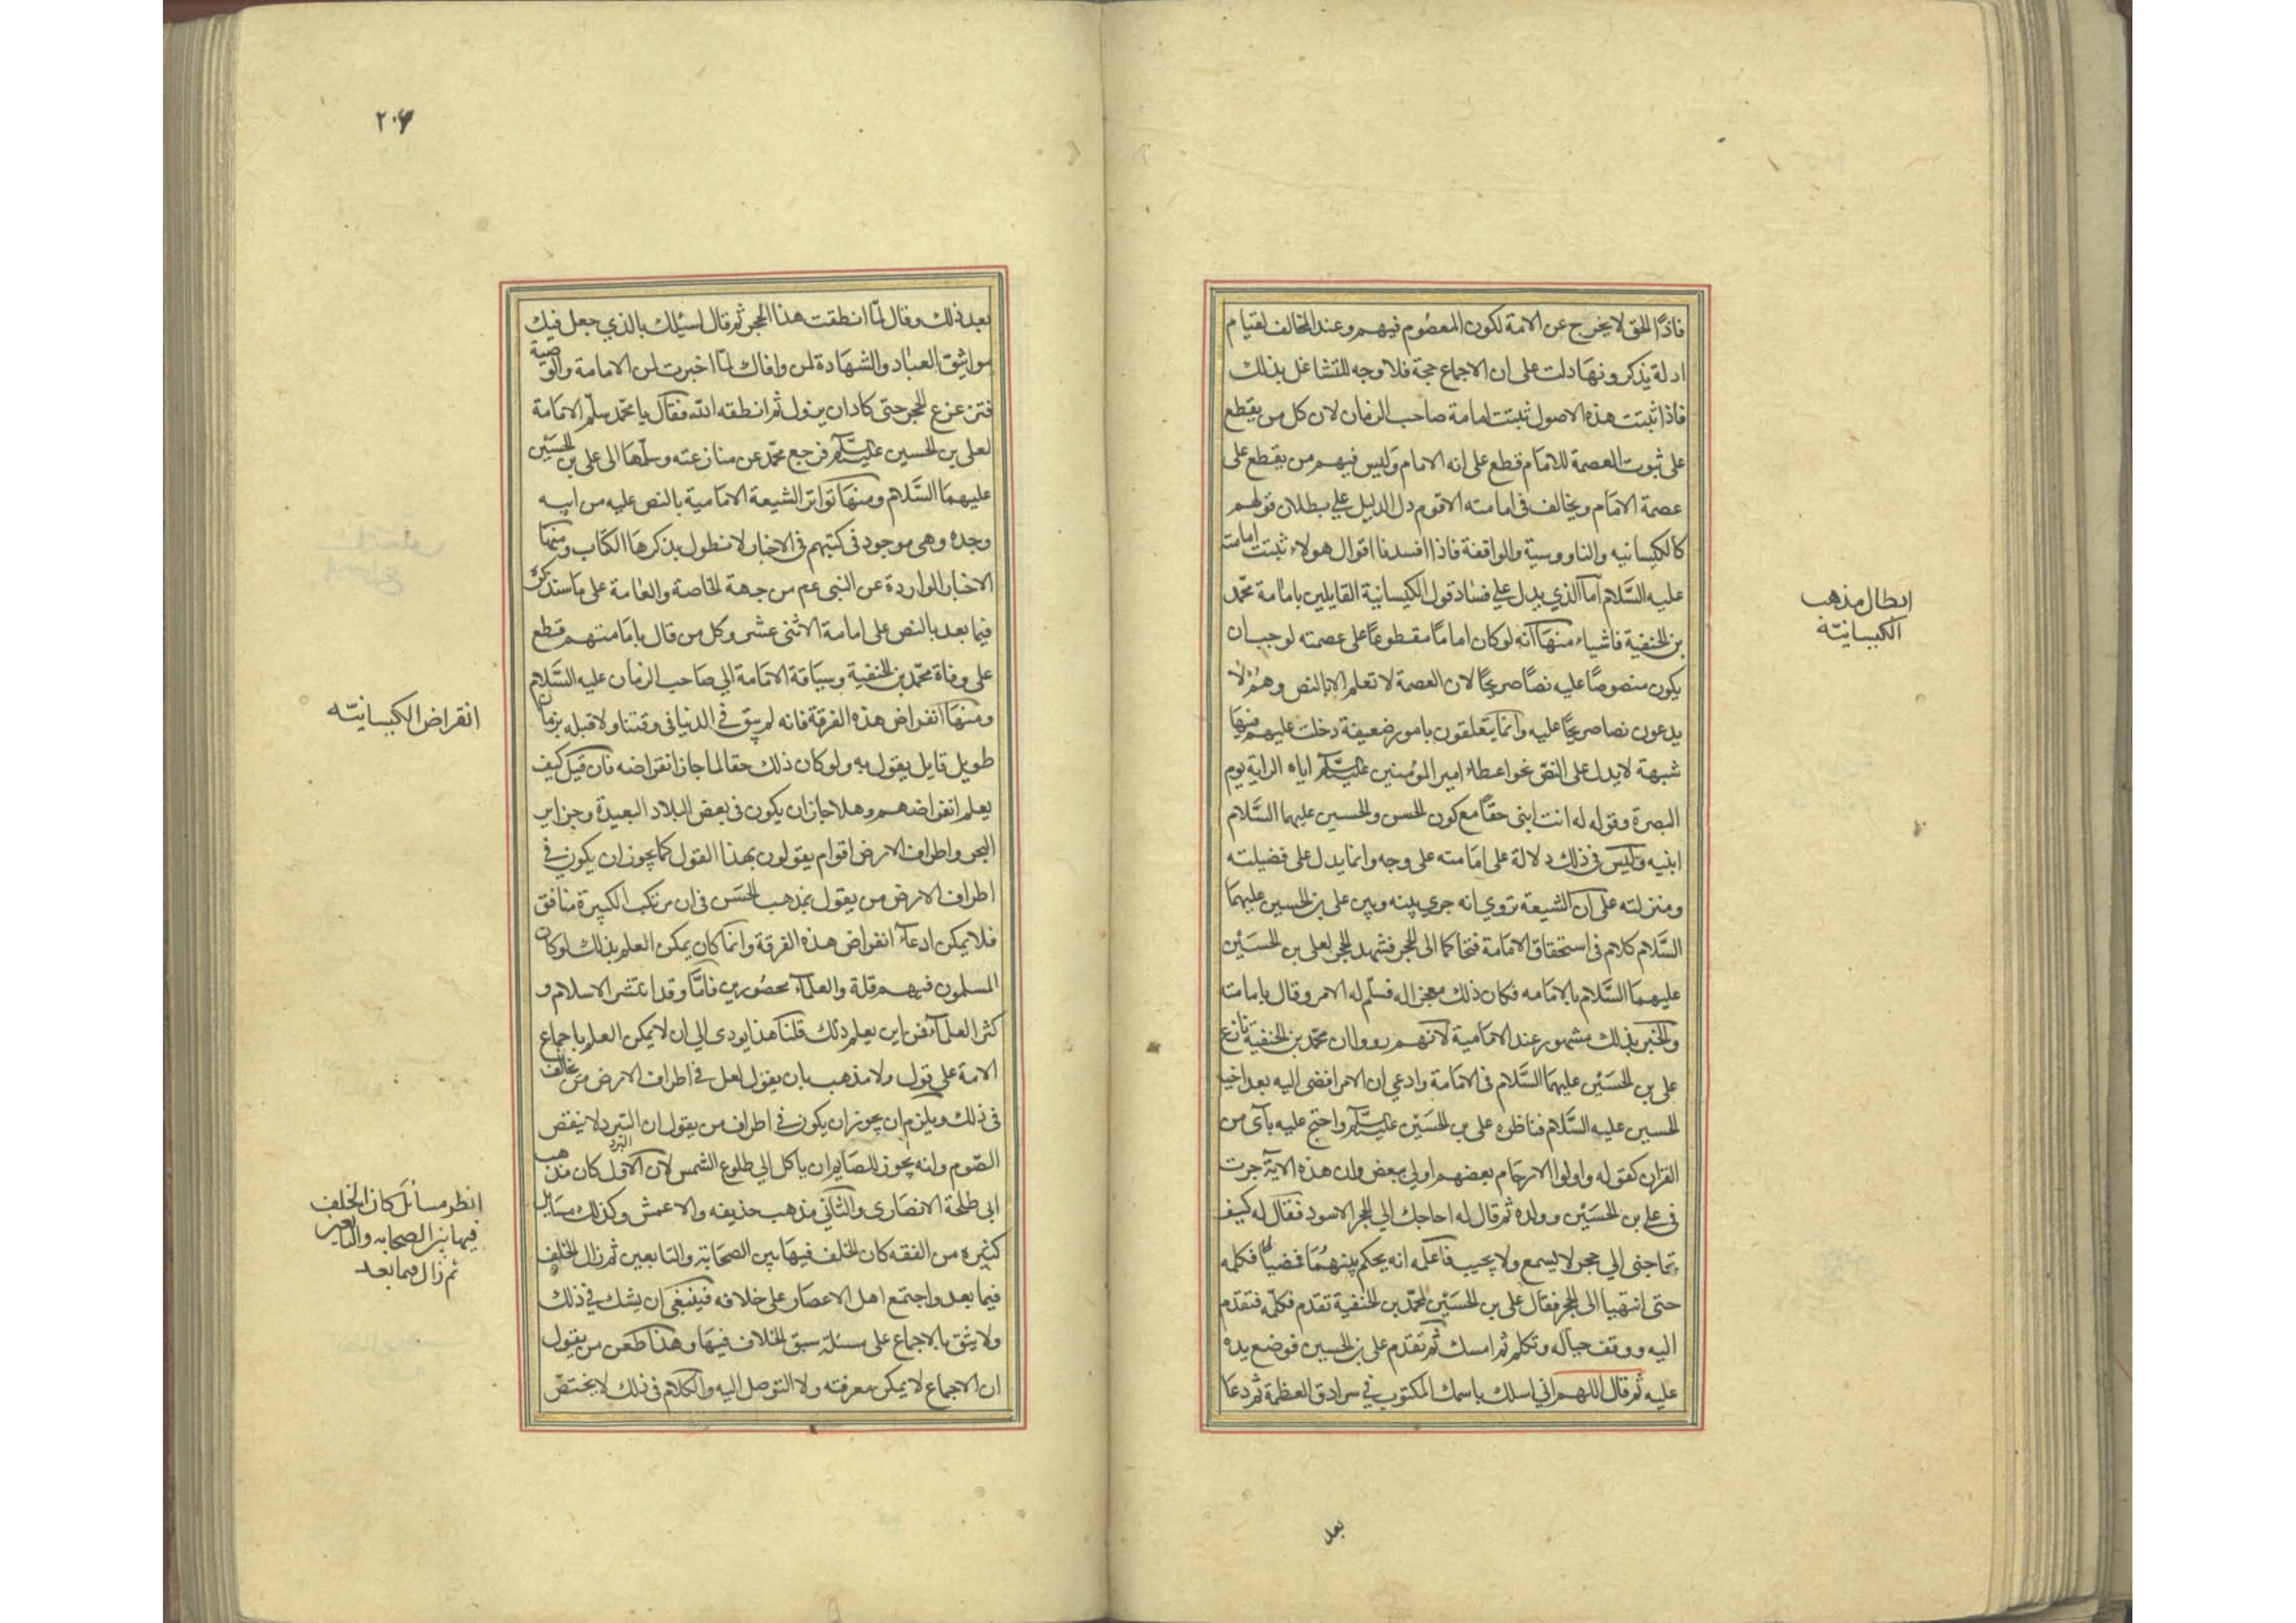 فاذًا الحق لا يخرج عن الامة لكون المعصوم فيهم وعند المخالف لقيام
ادلة يذكرونها دلت على ان الاجماع حجة فلا وجه للتشاغل بذلك
فاذا ثبتت هذه الاصول ثبتت امامة صاحب الزمان لان كل من يقطع
على ثبوت العصمة للامام قطع على انه الامام وليس فيهم من يقطع على
عصمة الامام ويخالف فى امامته الا قوم دل الدليل على بطلان قولهم
كالكيسانيه والناووسية والواقفة فاذا افسدنا اقوال هولاء ثبتت امامته
عليه السلام اما الذي يدل على فساد قول الكيسانية القايلين بامامة محمد
بن الحنفية فاشياء منها انه لو كان اماما مقطوعا على عصمته لوجب ان
يكون منصوصا عليه نصا صريحا لان العصمة لا تعلم الا بالنص وهم لا
يدعون نصا صريحا عليه وانما يتعلقون بامور ضعيفة دخلت عليهم فيها
شبهة لا يدل على النص نحو اعطاء امير المؤمنين عليه السلام اياه الراية يوم
البصرة وقوله له انت ابنى حقا مع كون الحسن والحسين عليهما السلام
ابنيه وليس فى ذلك دلالة على امامته على وجه وانما يدل على فضيلته
ومنزلته على ان الشيعة تروي انه جري بينه وبين على بن الحسين عليهما
السلام كلام فى استحقاق الامامة فتحاكما الى الحجر فشهد الحجر لعلى بن الحسين
عليهما السلام بالامامه فكان ذلك معجزا له فسلم له الامر وقال بامامته
والخبر بذلك مشهور عند الامامية لانهم رووا ان محمد بن الحنفية نازع
على بن الحسين عليهما السلام فى الامامة وادعي ان الامر افضى اليه بعد اخيه
الحسين عليه السلام فناظره على بن الحسين عليه السلام واحتج عليه بآى من
القران كقوله واولوا الارحام بعضهم اولي ببعض وان هذه الاية جرت
فى علي بن الحسين وولده ثم قال له احاجك الي الحجر الاسود فقال له كيف
تحاجنى الي حجر لا يسمع ولا يجيب فاعلمه انه يحكم بينهما فمضيا فكلمه
حتى انتهيا الى الحجر فقال على بن الحسين لمحمد بن الحنفية تقدم فكلمه فتقدم
اليه ووقف حياله وتكلم ثم امسك ثم تقدم على بن الحسين فوضع يده
عليه ثم قال اللهم اني اسلك باسمك المكتوب في سرادق العظمة ثم دعا
بعد
ابطال مذهب
الكيسانيّه
٢٠٤
بعد ذلك وقال لما انطقت هذا الحجر ثم قال اسئلك بالذي جعل فيك
مواثيق العباد والشهادة لمن وافاك لما اخبرت لمن الامامة والوصية
فتزعزع الحجر حتى كاد ان يزول ثم انطقه الله فقال يا محمد سلم الامامة
لعلى بن الحسين عليه السلام فرجع محمد عن منازعته وسلمها الى على بن الحسين
عليهما السلام ومنها تواتر الشيعة الامامية بالنص عليه من ابيه
وجده وهى موجود فى كتبهم فى الاخبار لا نطول بذكرها الكتاب ومنها
الاخبار الواردة عن النبى عم من جهة الخاصة والعامة على ما سنذكره
فيما بعد بالنص على امامة الاثنى عشر وكل من قال بامامتهم قطع
على وفاة محمد بن الحنفية وسياقة الامامة الي صاحب الزمان عليه السلام
ومنها انقراض هذه الفرقة فانه لم يبق في الدنيا فى وقتنا ولا قبله بزمان
طويل قايل يقول به ولو كان ذلك حقا لما جاز انقراضه فان قيل كيف
يعلم انقراضهم وهلا جاز ان يكون فى بعض البلاد البعيدة وجزاير
البحر واطراف الارض اقوام يقولون بهذا القول كما يجوز ان يكون في
اطراف الارض من يقول بمذهب الحسن فى ان مرتكب الكبيرة منافق
فلا يمكن ادعاء انقراض هذه الفرقة وانما كان يمكن العلم بذلك لو كان
المسلمون فيهم قلة والعلماء محصورين فاما وقد انتشر الاسلام و
كثر العلماء فمن اين يعلم ذلك قلنا هذا يودى الي ان لا يمكن العلم باجماع
الامة على قول ولا مذهب بان يقول لعل في اطراف الارض من يخالف
فى ذلك ويلزم ان يجوز ان يكون في اطراف من يقول ان البرد لا ينقض
الصوم وانه يجوز للصايم ان ياكل الي طلوع الشمس لان الاول كان مذهب
ابى طلحة الانصارى والثانى مذهب حذيفه والاعمش وكذلك مسايل
كثيرة من الفقه كان الخلف فيها بين الصحابة والتابعين ثم زال الخلف
فيما بعد واجتمع اهل الاعصار على خلافه فينبغى ان يشك في ذلك
ولا يثق بالاجماع على مسئلة سبق الخلاف فيها وهذا طعن من يقول
ان الاجماع لا يمكن معرفته ولا التوصل اليه والكلام فى ذلك لا يختص
انقراض الكيسانيّه
انظر مسائل كان الخلف
فيها بين الصحابه والتابعين
ثم زال فيما بعد